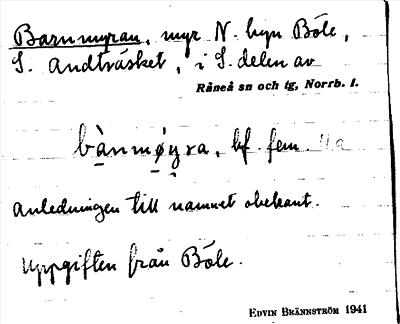 Barnmyran, myr N. byn Böle,
S. Andträsket, i S. delen av
Råneå sn och tg, Norrb. l.
bà̱nmø̱̀y̭ra, bf. fem. IIa
Anledningen till namnet obekant.
Uppgiften från Böle.
EDVIN BRÄNNSTRÖM 1941